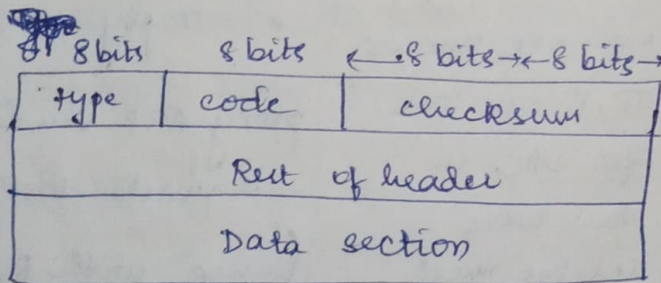 8 bits 8 bits ←.8 bits→←8 bits→
type code checksum
Rest of header
Data section